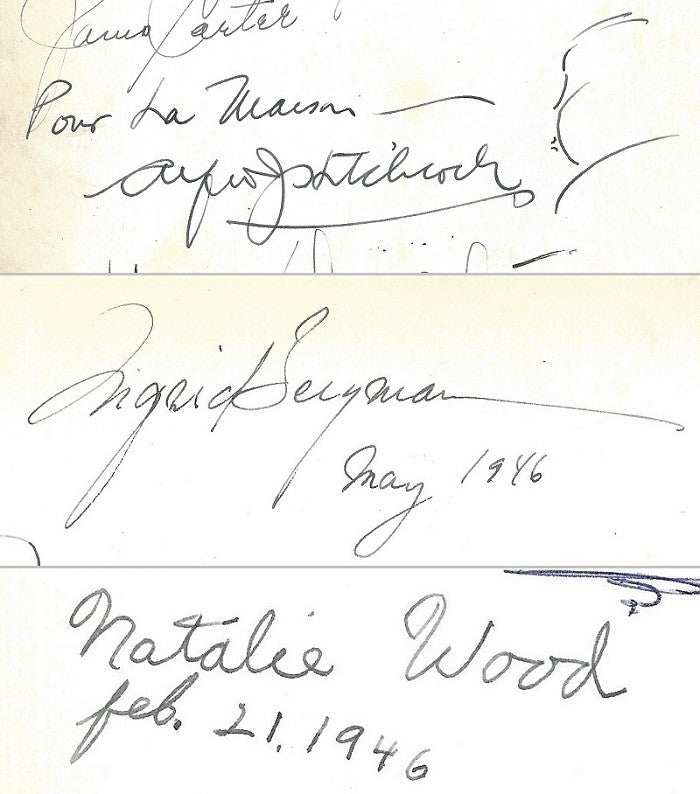 Carter
Pour La Maison
Alfred J Hitchcock
Ingrid Bergman
May 1946
Natalie Wood
feb. 21, 1946